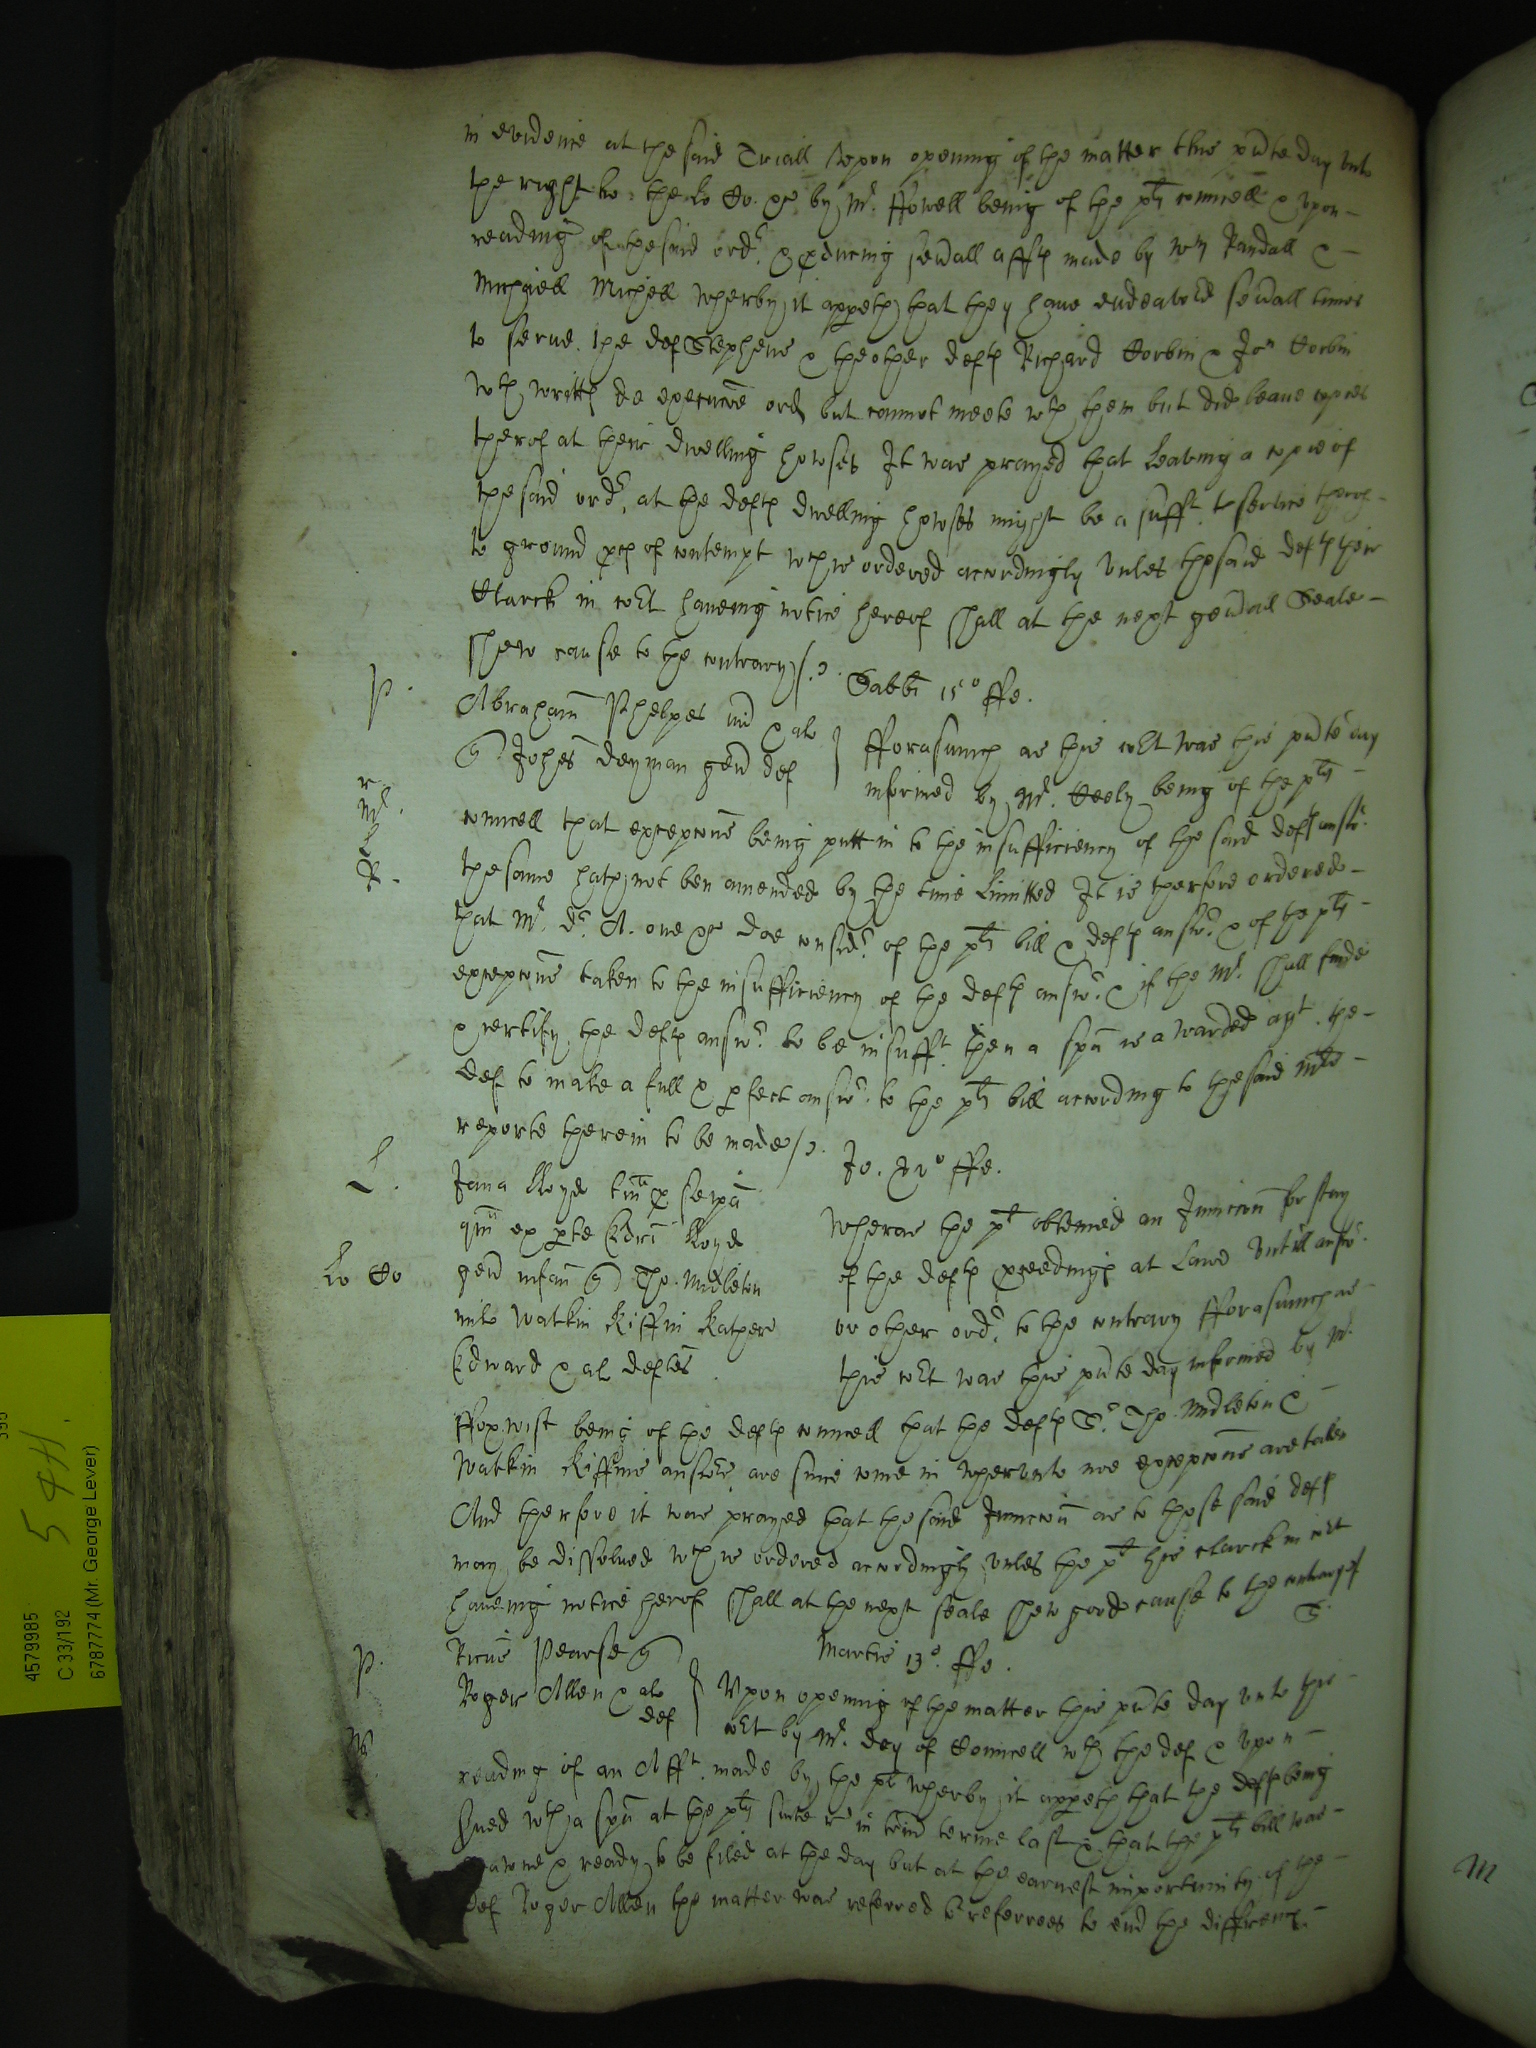 in evidence at the said Triall Vpon opening of the matter this pn̄te day vnto
the right ho: the Lo Co. &c by Mr. ffowell being of the plts councell & vpon
reading of the said ordr. & pducing sev̄all affts made by Wm Randall &
Michaell Michell wherby it appeth that they haue endeavored sev̄all times
to serve the def Stephens & the other defts Richard Corbin & Jon Corbin
wth writts de executōe ord but cannot meete wth them but did leaue copies
therof at their dwelling howses It was prayed that Leaving a copie of
the said ordr. at the defts dwelling howses might be a sufft. service therof
to ground pces of contempt wch is ordered accordingly vnles the said defts their
Clarck in coʳt haueing notice hereof shall at the next gen̄all Seale
shew cause to the contrary
P.
Sabb̄i 15o ffe.
Abraham Phelpes vid & als
q Johēs Deyman gen̄ def
fforasmuch as this coʳt was this pn̄te day
informed by Mr. Keely being of the plts
r
Mr.
L
R.
councell that excepcōns being putt in to the insufficiency of the said defts answr.
the same hath not ben amended by the time Limitted It is therfore ordered
that Mr. Dr. A. one &c doe considr. of the plts bill & defts answr. & of the plts
excepcōns taken to the insufficiency of the defts answr. & if the Mr. shall finde
& certify the defts answr. to be insufft. then a spā is awarded agt. the
def to make a full & pfect answr. to the plts bill according to the said Mrs
reporte therein to be made
L.
Jo. xxo ffe.
Jana Lloyd
qm̄ ex pte Edri Lloyd
gen̄ infan q Tho. Midleton
Lo Co
milo Watkin Kiffin
Edward & al deftes
Wheras the plt obteined an Junccōn for stay
of the defts pceedings at Lawe vntill answr.
or other ordr. to the contrary fforasmuch as
this coʳt was this pn̄te day informed by Mr.
ffoxwist being of the defts councell that the defts Sr. Tho. Midleton &
Watkin Kiffins answrs are since come in whervnto noe excepcōns are taken
And therfore it was prayed that the said Junccōn as to those said defts
may be dissolved wch is ordered accordingly vnles the plt his clarck in coʳt
haueing notice herof shall at the next seale shew good cause to the contrary
P.
Martis 13o. ffe.
Ricūs Pearse q
Roger Allen & als
def
Vpon opening of the matter this pn̄te day vnto this
coʳt by Mr. Dey of Councell wth the def & vpon
reading of an Afft. made by the plt wherby it appeth that the defts being
sved wth a spā at the plts suite in term̄ terme last & that the plts bill was
drawne & ready to be filed at the day but at the earnest importunity of the
def Roger Allen the matter was referred to referrees to end the differences
5 4H
4579985
C 33/192
6787774 (Mr. George Lever)
M